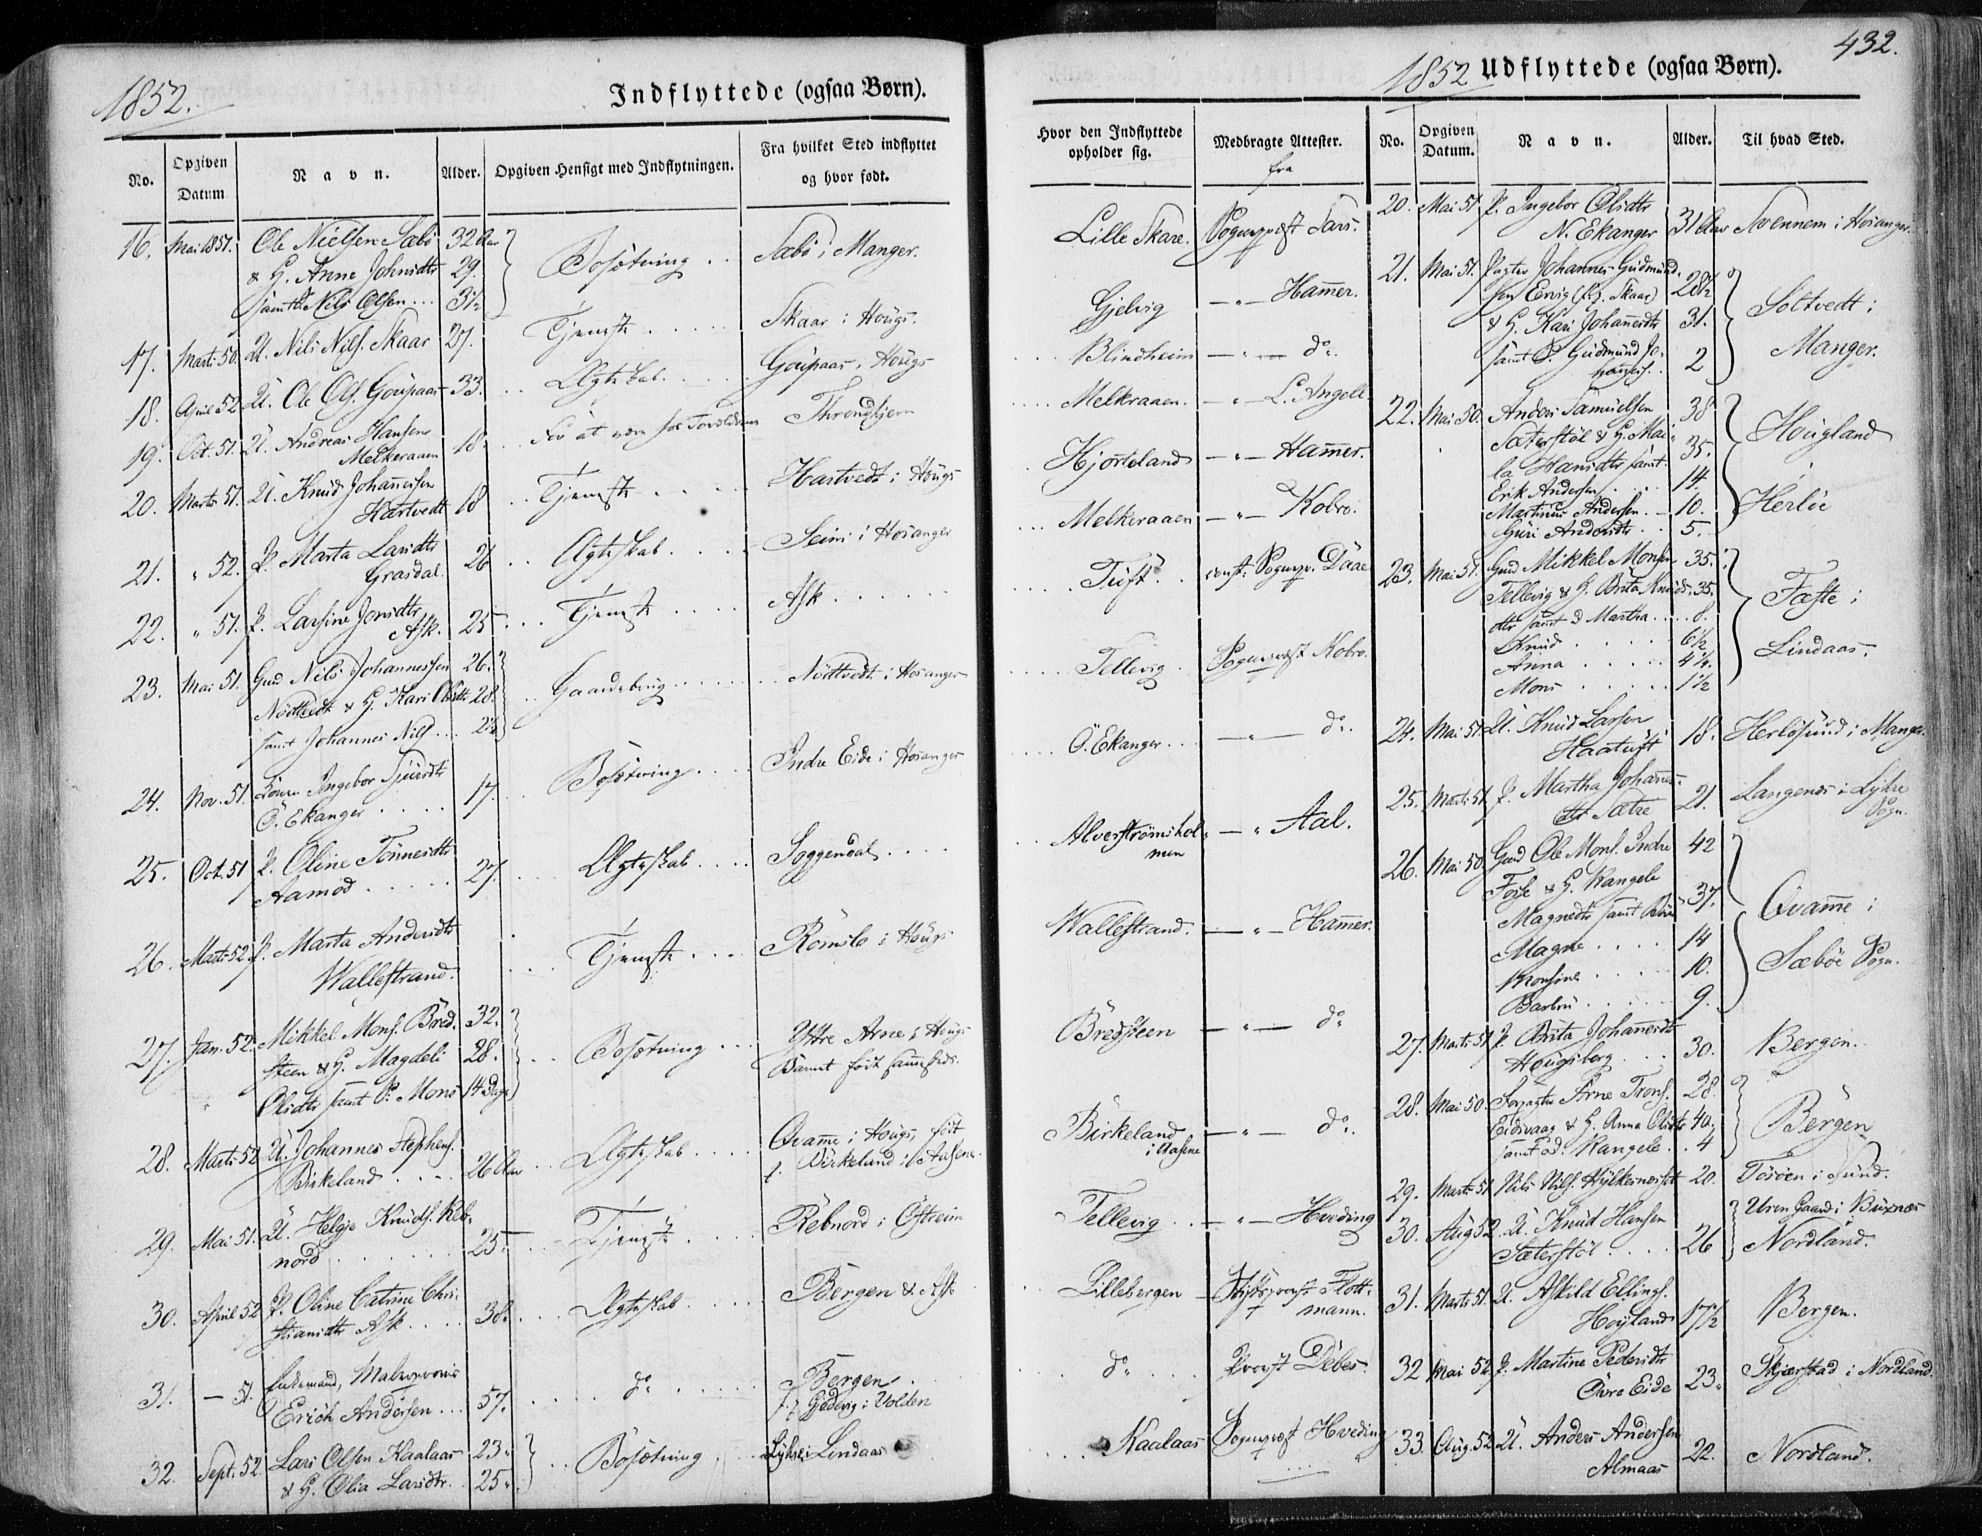 1852.
Indflyttede (ogsaa Børn).
No.
Opgiven Datum
Navn.
Alder.
Opgiven Hensigt med Indflytningen.
Fra hvilket Sted indflyttet og hvor født.
16. Mai 1851. Ole Nielsen Sæbö 32 Aar Bosætning Sæbö i Manger.
& H. Anne Johnsdtr 29.
samt Nils Olsen 3½
17. Marts 50. U. Nils Nils. Skaar 27. Tjeneste Skaar i Hougs.
18. April 52 U. Ole Ols. Goupaas 33. Ægteskab Goupaas, Hougs
19. Oct. 51. U. Andreas Hansen 18 For at være hos Forældrene Throndhjem
Melkeraaen
20. Marts 51. U. Knud Johannesen 18 Tjeneste Hartvedt i Hougs
Hartvedt
21. " 52. P. Marta Larsdtr 26 Ægteskab Seim i Hosanger
Grasdal.
22. " 51. P. Larsine Jonsdtr 25 Tjeneste Ask
Ask.
23. Mai 51. Gmd Nils Johannessen 26. Gaardsbrug Nöttvedt i Hosanger
Nöttvedt & H. Kari Olsdtr 28.
samt Johannes Nils. 2½
24. Nov. 51. Ingebor Sjursdtr 17. Bosætning Indre Eide i Hosanger
Ö. Ekanger
25. Oct. 51 P. Oline Tönnesdtr 27. Ægteskab Soggendal
Aamod
26. Marts 52. P. Marta Andersdtr Tjeneste Romslo i Hougs
Wallestrand.
27. Jan. 52. Mikkel Mons. Bred- 32. Bosætning Yttre Arne i Hougs
steen & H. Magdeli 28. Barnet födt sammesteds.
Olsdtr samt P. Mons 14 Dage
28. Marts 52 U. Johannes Stephens. 26 Aar Ægteskab Qvamme i Hougs, födt
Birkeland i Birkeland i Aasene.
29. Mai 51. U. Helge Knuds. Reb- 25. Tjeneste Rebnord i Östreim
nord
30. April 52 P. Oline Catrine Chri- 30. Ægteskab Bergen & Ask
stiansdtr Ask
31. — 51. Enkemand, 57. do Bergen.
Erich Andersen f. i Gjedvig i Volden
32. Sept. 52. Lars Olsen Kaalaas 23. Bosætning Lyhse i Lindaas
& H. Olia Larsdtr. 25.
1852 Udflyttede (ogsaa Børn).
432.
Hvor den Indflyttede opholder sig.
Medbragte Attester.
fra
No.
Opgiven Datum.
Navn.
Alder.
Til hvad Sted.
Lille Skare. Sognepræst Sars. 20. Mai 51. P. Ingebor Olsdtr
N. Ekanger 31 Aar Svennem i Hosanger.
Gjelvig — " — Hamer. 21. Mai 51. Pagter Johannes Gudmund-
sen Eevig (fr. Skaar) 28½ Soltvedt i
& H. Kari Johannesdtr 31. Manger.
Blindheim — " — do. samt S. Gudmund Jo-
hannes. 2
Melkeraaen. — " — L. Angell 22. Mai 50. Anders Samuelsen 38 Hougland
Hjorteland — " — Hamer. Sæterstöl & H. Mai- i
la Hansdtr samt 35. Herlöe
Erik Andersen 14.
Melkeraaen — " — Kobro. Martinus Andersen 10.
Guri Andersdtr 5.
Tuft. const. Sognepr. Daae 23. Mai 51. Gmd Mikkel Monsen 35. Fæste i
Tellevig & H. Brita Knuds- 35. Lindaas.
dtr samt D Martha 8.
Tellevig. Sognepræst Kobro. Knud 6½
Anna 4½.
Mons 1½
Ö. Ekanger — " — do. 24. Mai 51. U. Knud Larsen
Haatuft 18. Herlösund i Manger.
25. Marts 51. P. Martha Johannes-
dtr Sætre 21. Langenæs i Lyhse Sogn.
Alverströmshol- — " Aal.
men
26. Mai 50 Gmd Ole Mons. Indre 42 Qvamme i
Fosse & H. Wangele Sæböe Sogn.
Magnedtr samt Börn 37.
Wallestrand. — " — Hamer. Magne 14
Monsine 10.
Barbru 9.
Bredsteen — " — do 27. Marts 51 P. Brita Johannesdtr
Hougsberg 30. Bergen.
28. Mai 50. Forpagter Arne Trons. 28. Bergen
Birkeland — " — do. Eidsvaag & H. Anna Olsdtr 40.
i Aasene samt Wangele 4
29. Marts 51 Nils Nils. Hylkernæset 20. Tösöen i Sund.
Tellevig — " — Hveding 30. Aug 52. U. Knud Hansen Uren Gaard i Buxnæs
Sæterstöl 26 Nordland.
Lillebergen Stiftsprovst Flott-
mann. 31. Marts 51. U. Askild Ellings.
Hoyland 17½ Bergen.
do Provst Debes. 32 Mai 52. P. Martine Pedersdtr
Övre Eide 23. Skjerstad i Nordland.
Kaalaas Sognepræst Hveding 33. Aug. 52. U. Anders Andersen
Almaas 22. Nordland.